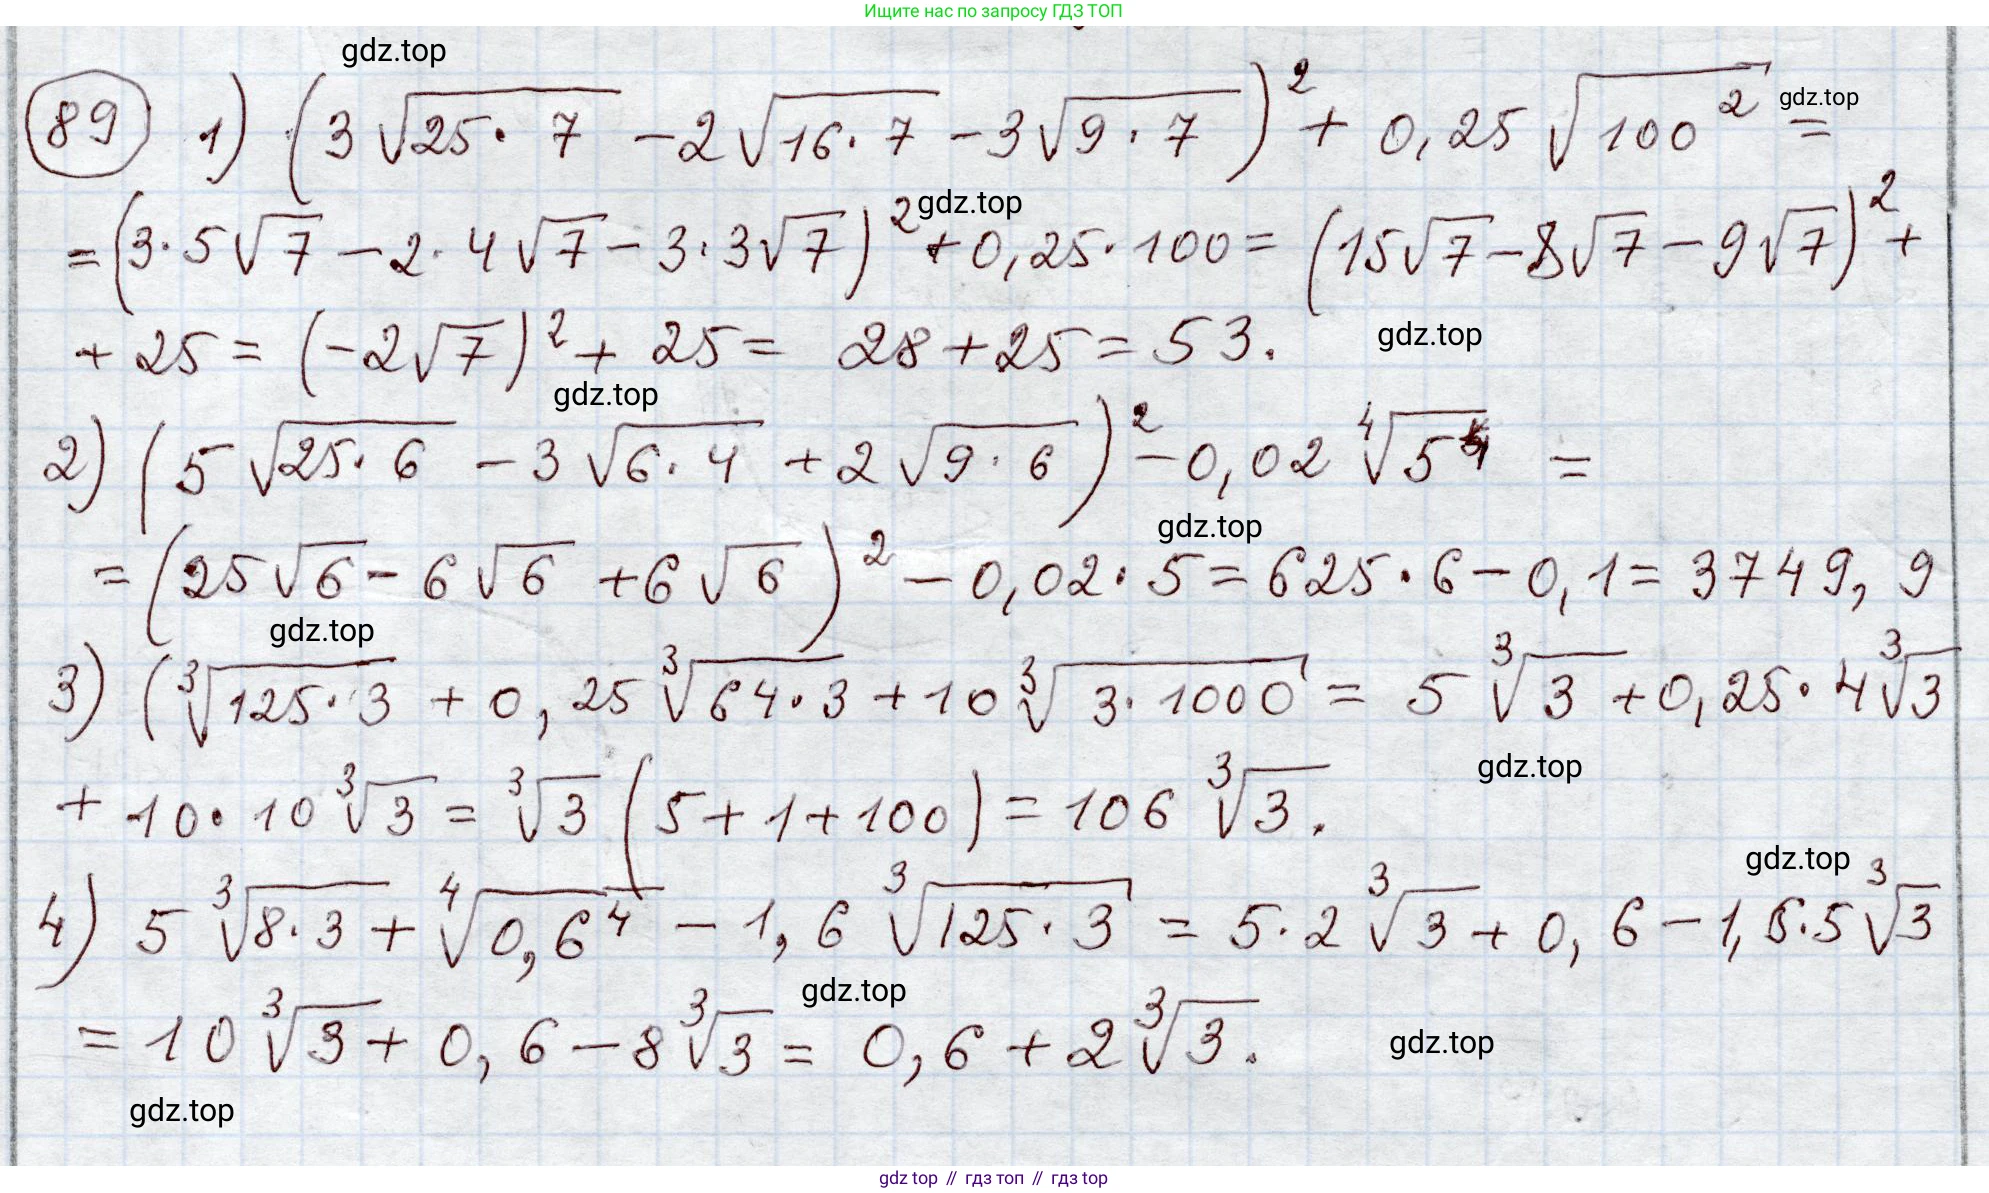 Ищите нас по запросу ГДЗ ТОП
gdz.top
89 1) (3√(25·7) − 2√(16·7) − 3√(9·7))² + 0,25√(100²) = gdz.top
= (3·5√7 − 2·4√7 − 3·3√7)² + 0,25·100 = (15√7 − 8√7 − 9√7)² +
gdz.top
+ 25 = (−2√7)² + 25 = 28 + 25 = 53.
gdz.top
gdz.top
2) (5√(25·6) − 3√(6·4) + 2√(9·6))² − 0,02 ⁴√(5⁴) =
gdz.top
= (25√6 − 6√6 + 6√6)² − 0,02·5 = 625·6 − 0,1 = 3749,9
gdz.top
3) (³√(125·3) + 0,25 ³√(64·3) + 10 ³√(3·1000) = 5 ³√3 + 0,25·4 ³√3
gdz.top
+ 10·10 ³√3 = ³√3 (5 + 1 + 100) = 106 ³√3.
gdz.top
4) 5 ³√(8·3) + ⁴√(0,6⁴) − 1,6 ³√(125·3) = 5·2 ³√3 + 0,6 − 1,6·5 ³√3
gdz.top
= 10 ³√3 + 0,6 − 8 ³√3 = 0,6 + 2 ³√3.
gdz.top
gdz.top
gdz top // гдз топ // гдз top